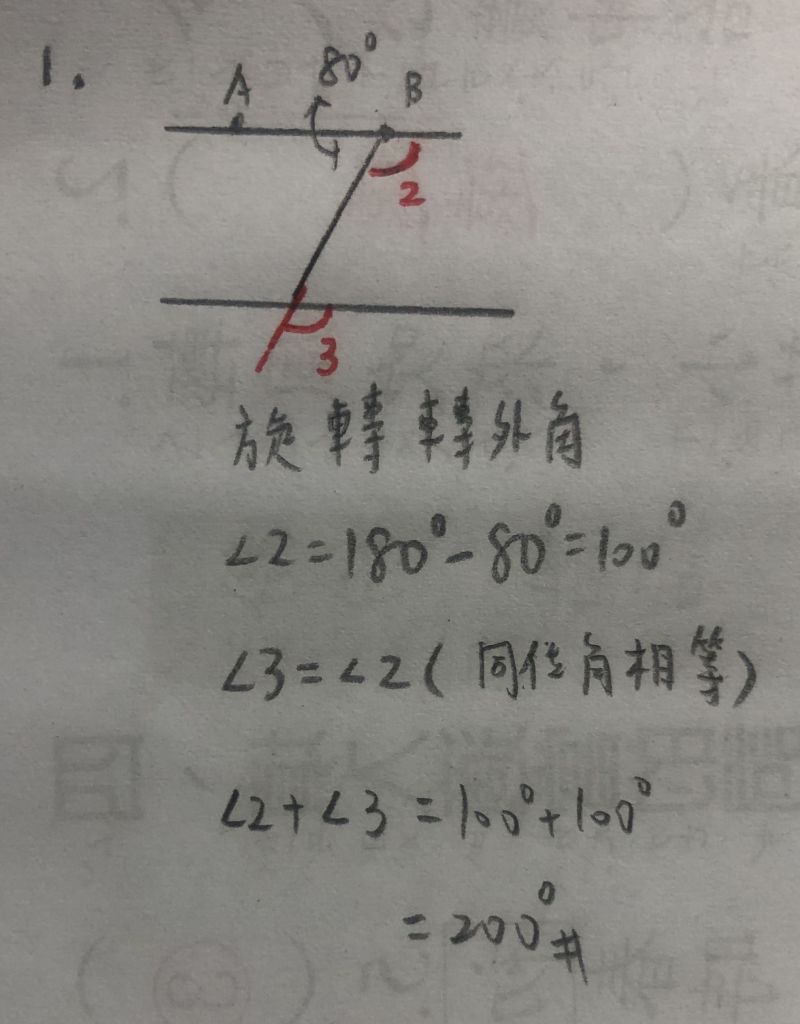 1.
80°
A B
2
3
旋轉轉外角
∠2=180°-80°=100°
∠3=∠2(同位角相等)
∠2+∠3=100°+100°
=200°#